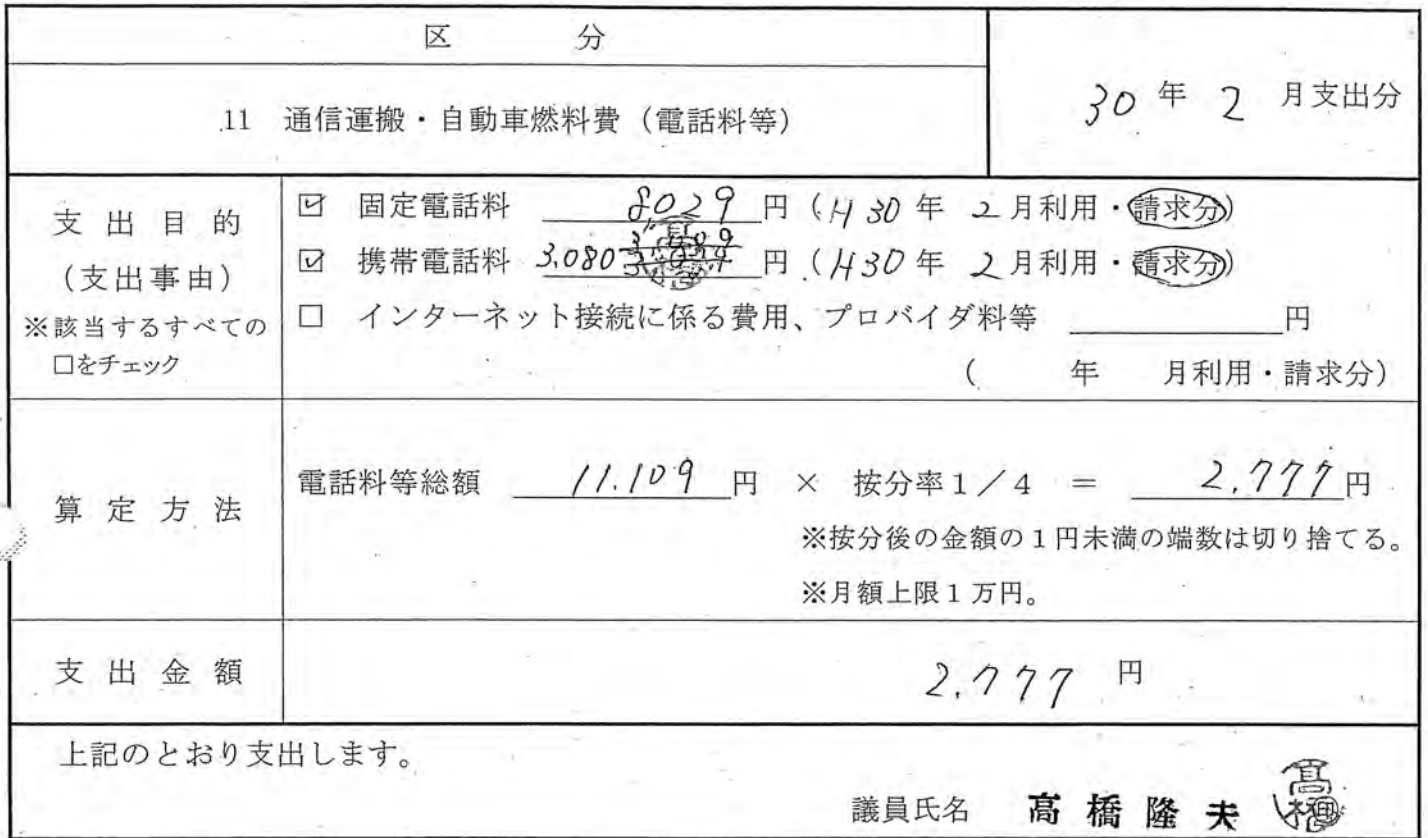 区 分
11 通信運搬・自動車燃料費（電話料等）
30 年 2 月支出分
支出目的
（支出事由）
※該当するすべての
□をチェック
☑ 固定電話料 8029 円（H30年 2月利用・請求分）
☑ 携帯電話料 3,080 円（H30年 2月利用・請求分）
□ インターネット接続に係る費用、プロバイダ料等 円
（ 年 月利用・請求分）
算定方法
電話料等総額 11.109 円 × 按分率1／4 ＝ 2,777円
※按分後の金額の1円未満の端数は切り捨てる。
※月額上限1万円。
支出金額
2,777 円
上記のとおり支出します。
議員氏名 髙橋隆夫